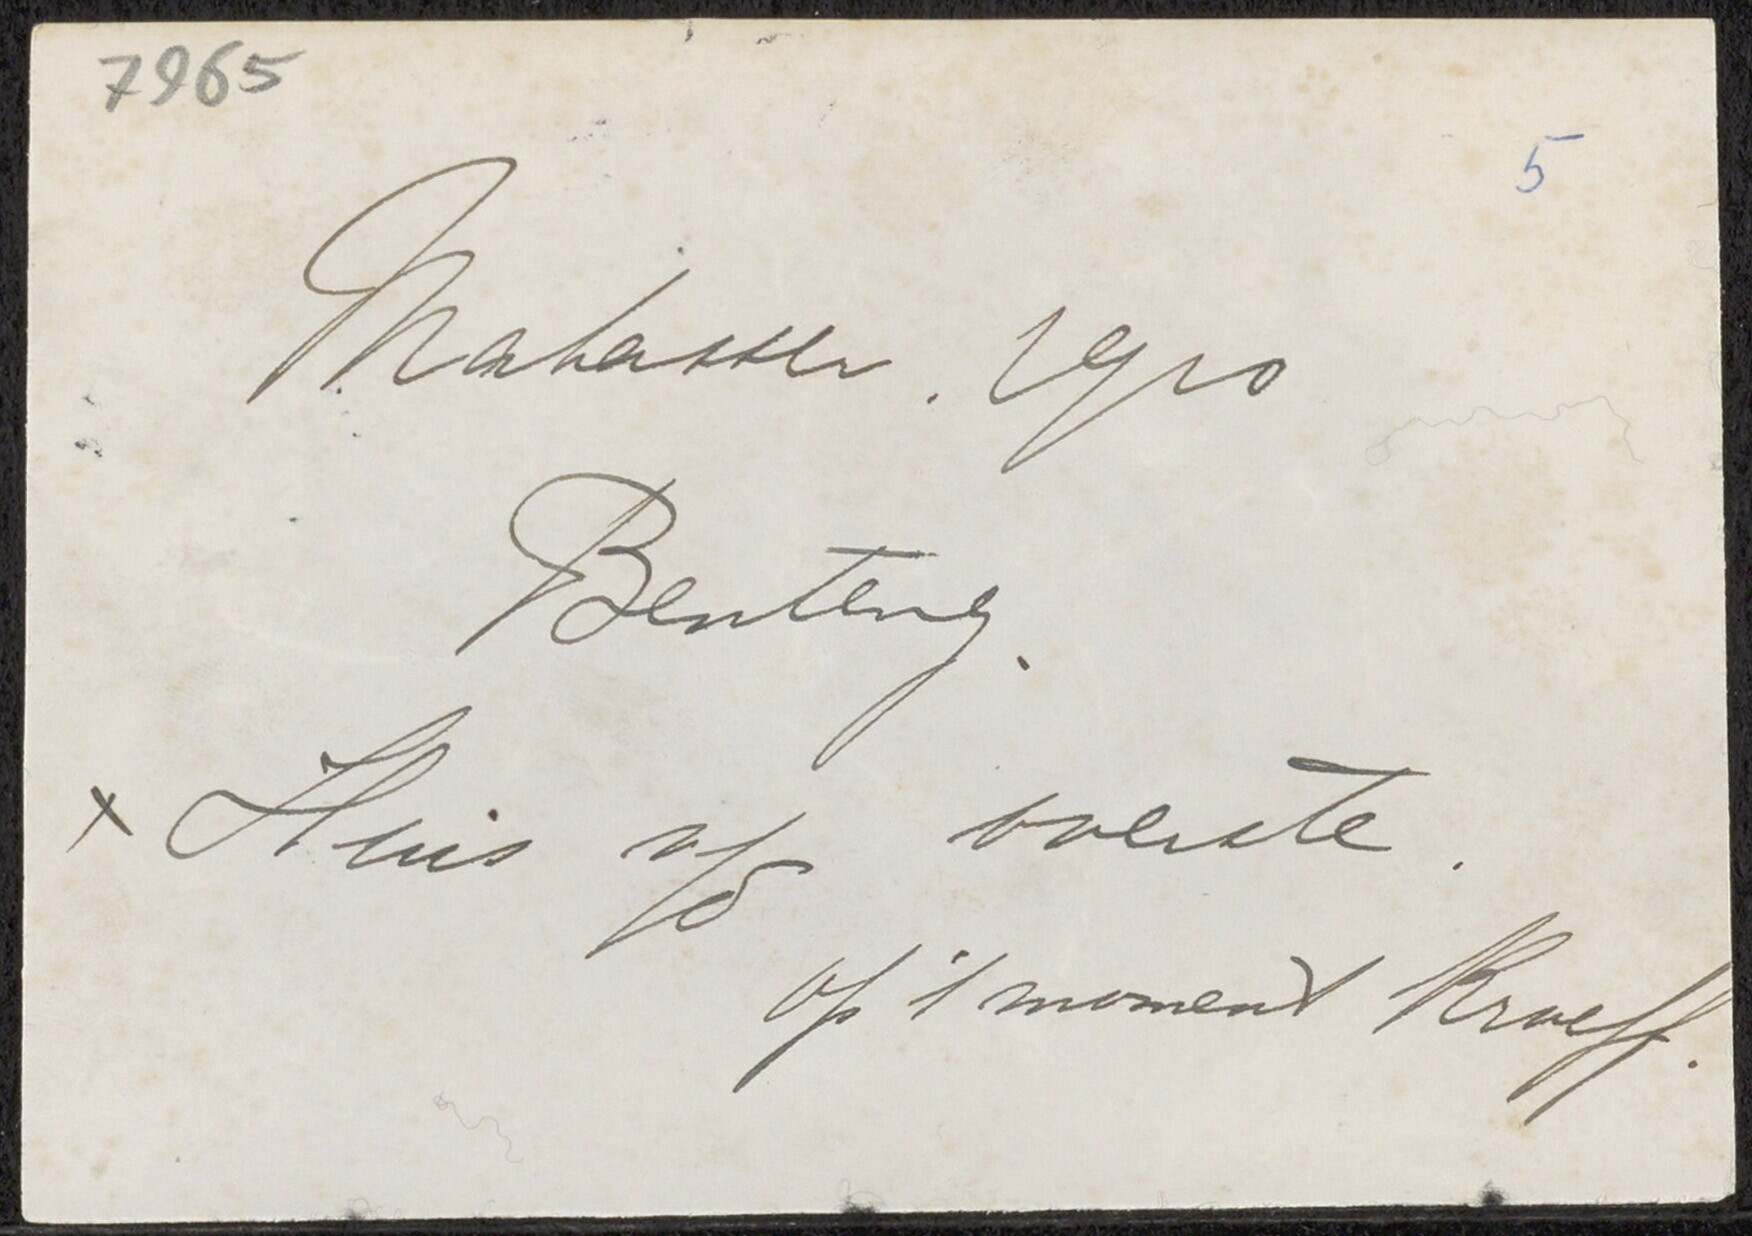 7965
5
Makasser. 1910
Benteng.
x Huis v/d overste.
op 't moment Kroeff.